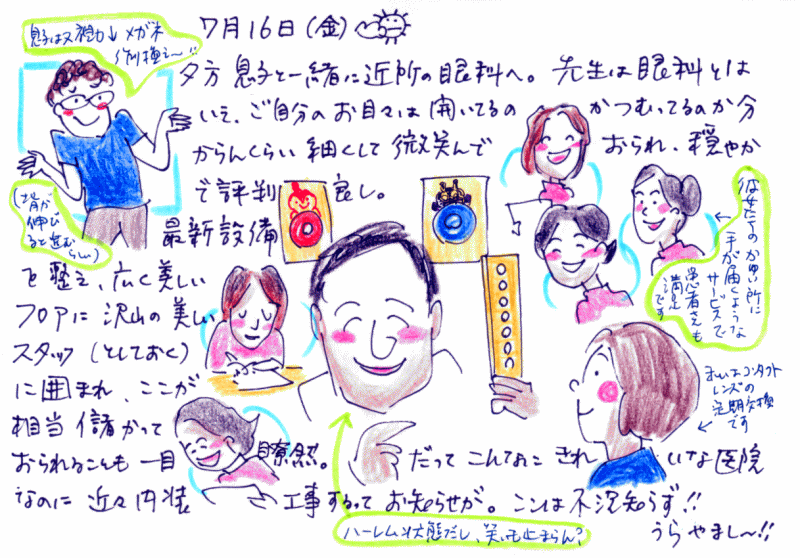 7月16日(金)
息子は又視力↓メガネ
作り換え〜!!
夕方 息子と一緒に近所の眼科へ。先生は眼科とは
いえ、ご自分のお目々は開いてるの かつむってるのか分
からんくらい細くして微笑んで おられ、穏やか
で評判 良し。
最新設備
を整え、広く美しい
フロアに沢山の美しい
スタッフ(としておく)
に囲まれ、ここが
相当儲かって
おられることも一目 瞭然。 だってこんなに きれ いな医院
なのに近々内装 工事するって お知らせが。ここは不況知らず!!
うらやまし〜!!
(背が
伸び
ると進む
らしい)
彼女たちのかゆい所に
手が届くような
サービスで
患者さんも
満足
です
まいはコンタクト
レンズの
定期交換
です
ハーレム状態だし、笑いも止まらん?